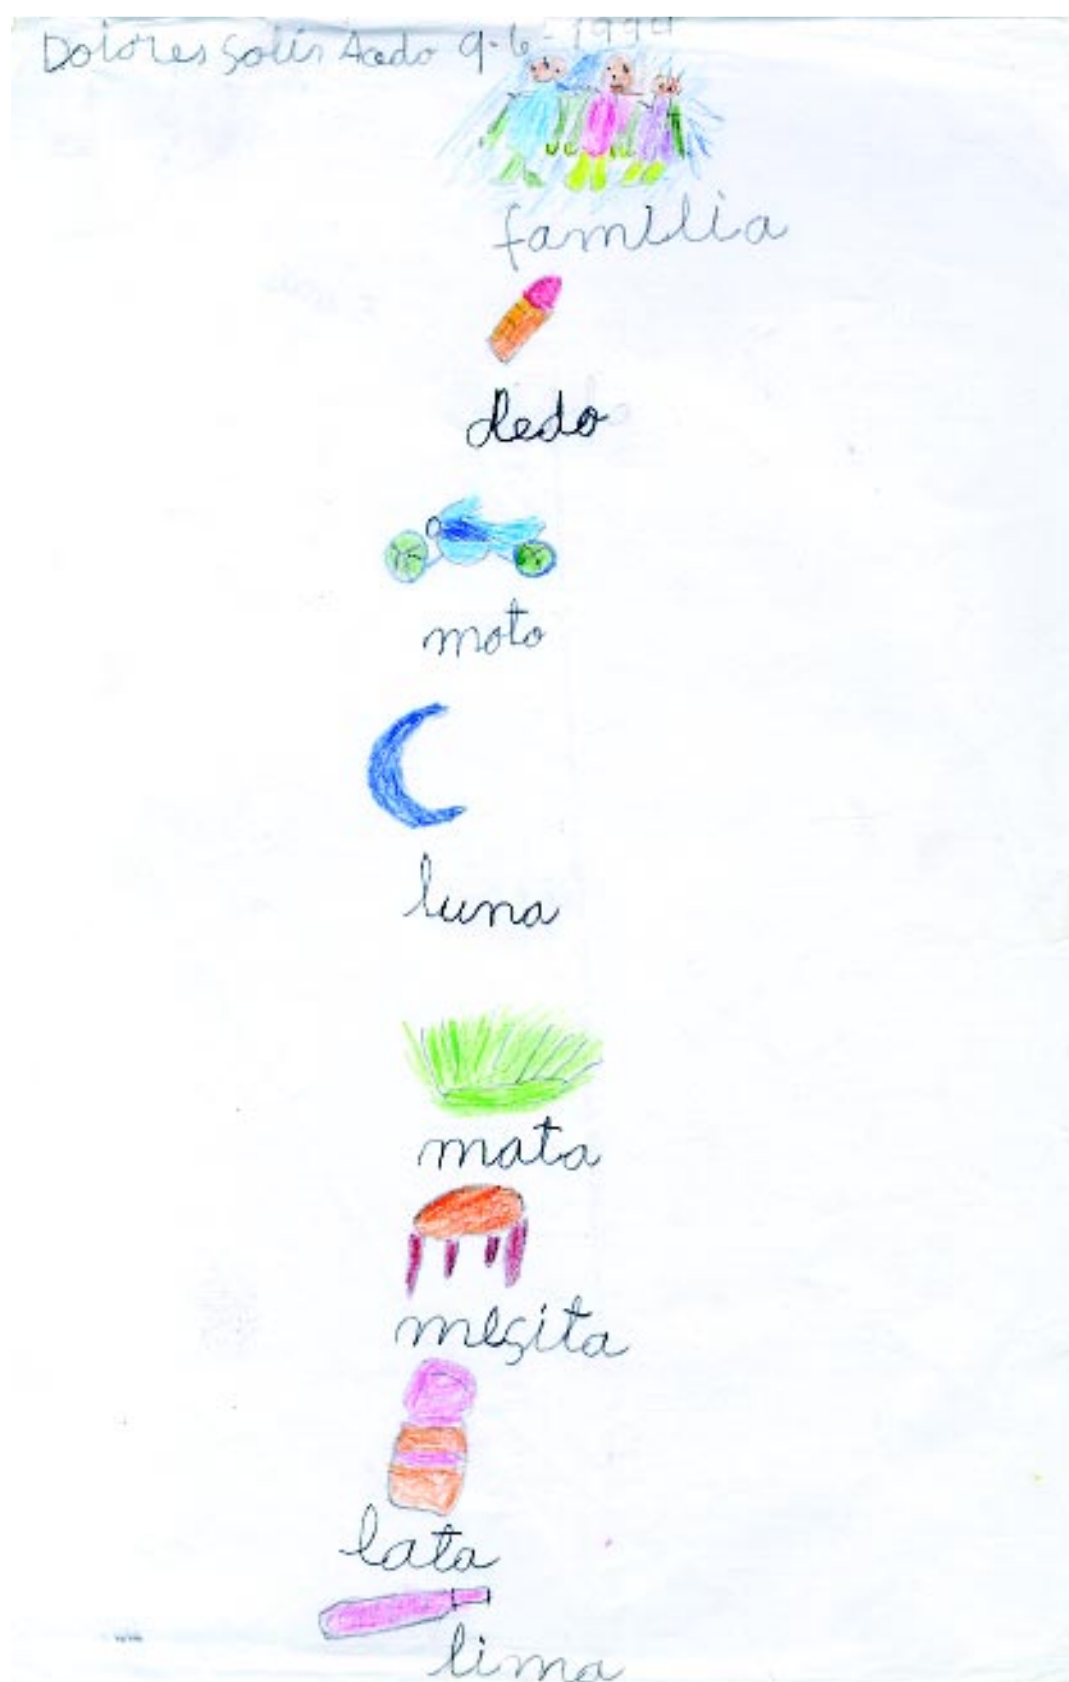 Dolores Solis Acedo 9-6-1999
familia
dedo
moto
luna
mata
mesita
lata
lima